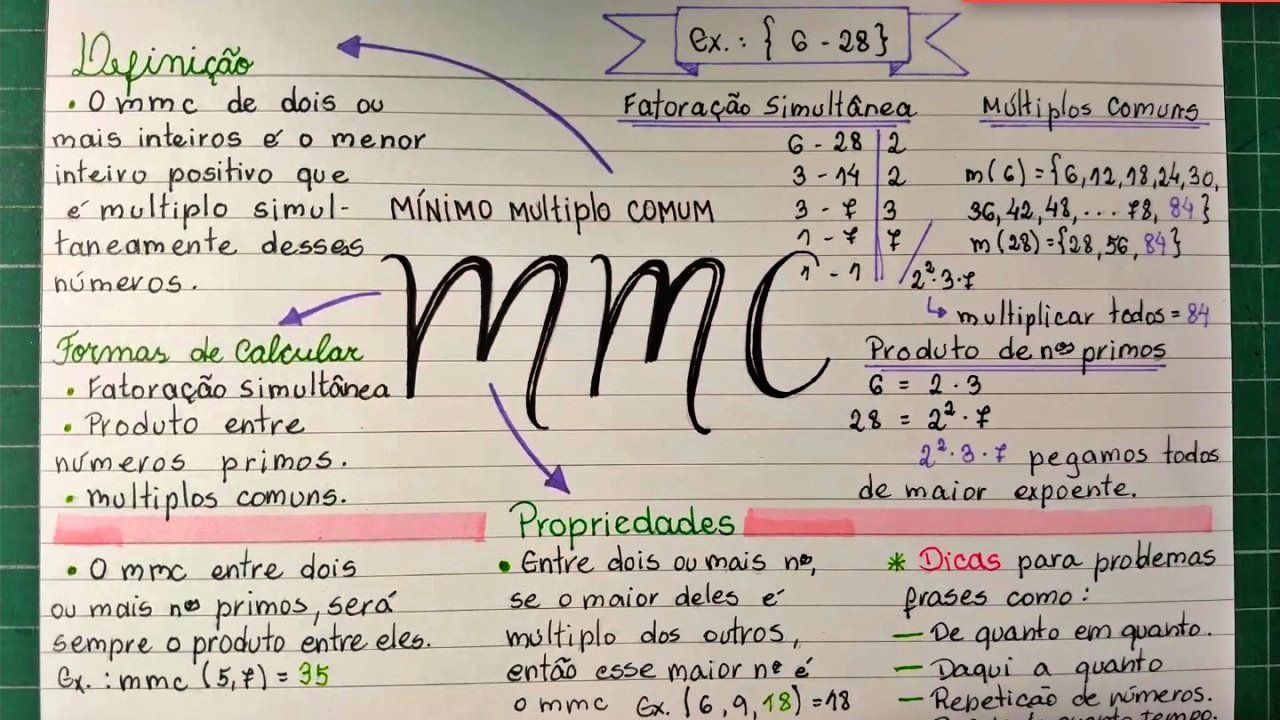 Definição
• O mmc de dois ou
mais inteiros é o menor
inteiro positivo que
é multiplo simul-
taneamente desses
números.
Formas de Calcular
• Fatoração simultânea
• Produto entre
números primos.
• multiplos comuns.
MÍNIMO Multiplo COMUM
mmc
Ex.: { 6 - 28}
Fatoração Simultânea
6 - 28 | 2
3 - 14 | 2
3 - 7 | 3
1 - 7 | 7
1 - 1 / 2²·3·7
↳ multiplicar todos = 84
Múltiplos Comuns
m(6) = {6,12,18,24,30,
36,42,48,... 78, 84}
m(28) = {28,56,84}
Produto de nos primos
6 = 2 · 3
28 = 2² · 7
2²·3·7 pegamos todos
de maior expoente.
Propriedades
• O mmc entre dois
ou mais nos primos, será
sempre o produto entre eles.
Ex.: mmc (5,7) = 35
• Entre dois ou mais nos,
se o maior deles é
multiplo dos outros,
então esse maior nº é
o mmc Ex. (6,9,18) = 18
* Dicas para problemas
frases como:
— De quanto em quanto.
— Daqui a quanto
— Repetição de números.